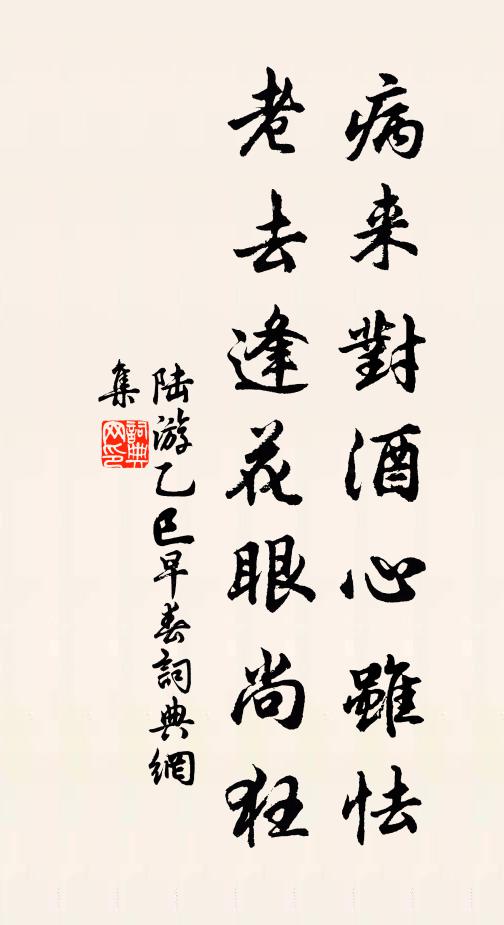 病来對酒心雖怯
老去逢花眼尚狂
陆游乙巳早春詞典網
集
詞典
网印